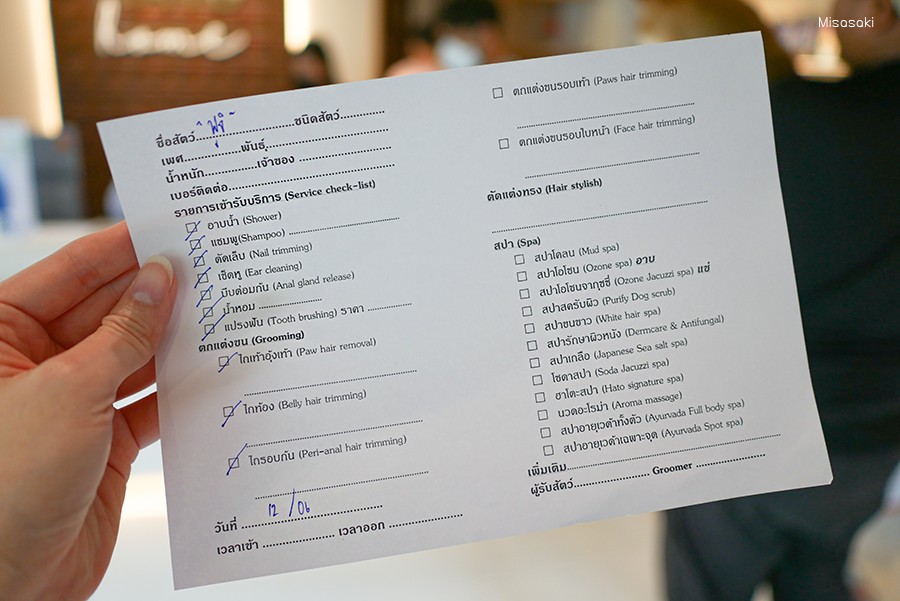 Misasaki
home
ชื่อสัตว์ "ฟูจิ" ชนิดสัตว์
เพศ พันธุ์
น้ำหนัก เจ้าของ
เบอร์ติดต่อ
รายการเข้ารับบริการ (Service check-list)
อาบน้ำ (Shower)
แชมพู(Shampoo)
ตัดเล็บ (Nail trimming)
เช็ดหู (Ear cleaning)
บีบต่อมก้น (Anal gland release)
น้ำหอม
แปรงฟัน (Tooth brushing) ราคา
ตกแต่งขน (Grooming)
ไถเท้าอุ้งเท้า (Paw hair removal)
ไถท้อง (Belly hair trimming)
ไถรอบก้น (Peri-anal hair trimming)
วันที่ 12/06
เวลาเข้า เวลาออก
ตกแต่งขนรอบเท้า (Paws hair trimming)
ตกแต่งขนรอบใบหน้า (Face hair trimming)
ตัดแต่งทรง (Hair stylish)
สปา (Spa)
สปาโคลน (Mud spa)
สปาโอโซน (Ozone spa) อาบ
สปาโอโซนจากุซซี่ (Ozone Jacuzzi spa) แช่
สปาสครับผิว (Purify Dog scrub)
สปาขนขาว (White hair spa)
สปารักษาผิวหนัง (Dermcare & Antifungal)
สปาเกลือ (Japanese Sea salt spa)
โซดาสปา (Soda Jacuzzi spa)
ฮาโตะสปา (Hato signature spa)
นวดอะโรม่า (Aroma massage)
สปาอายุเวด้าทั้งตัว (Ayurvada Full body spa)
สปาอายุเวด้าเฉพาะจุด (Ayurvada Spot spa)
เพิ่มเติม
ผู้รับสัตว์ Groomer